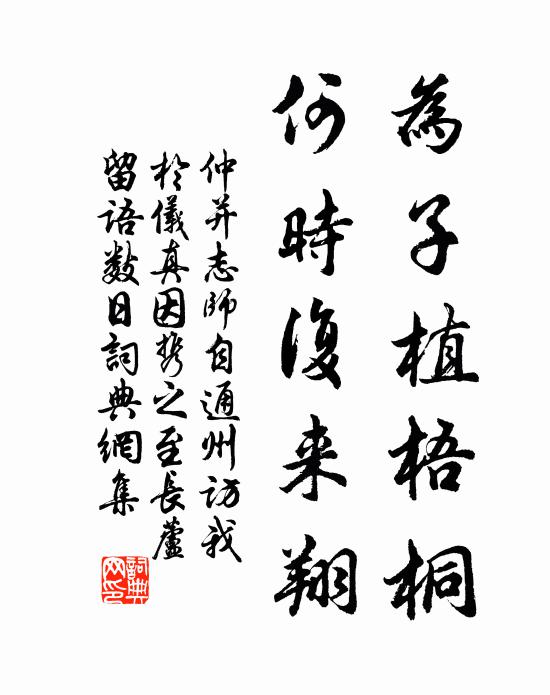 為子植梧桐
何時復来翔
仲并志師自通州訪我
於儀真因携之至長蘆
留語數日詞典網集
詞典网印